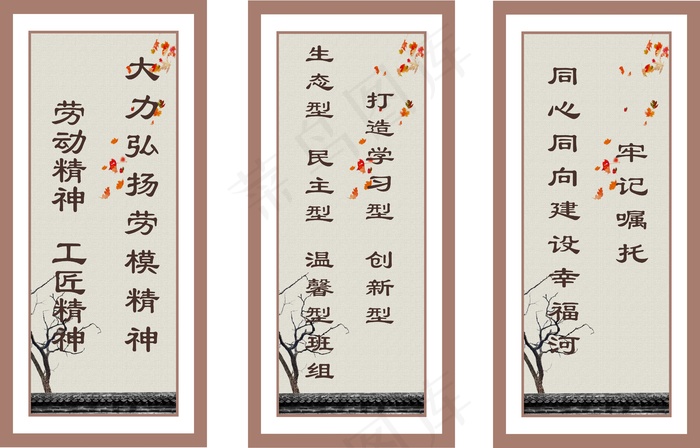 大力弘扬劳模精神
劳动精神 工匠精神
打造学习型 创新型
生态型 民主型 温馨型班组
牢记嘱托
同心同向建设幸福河
菜鸟图库